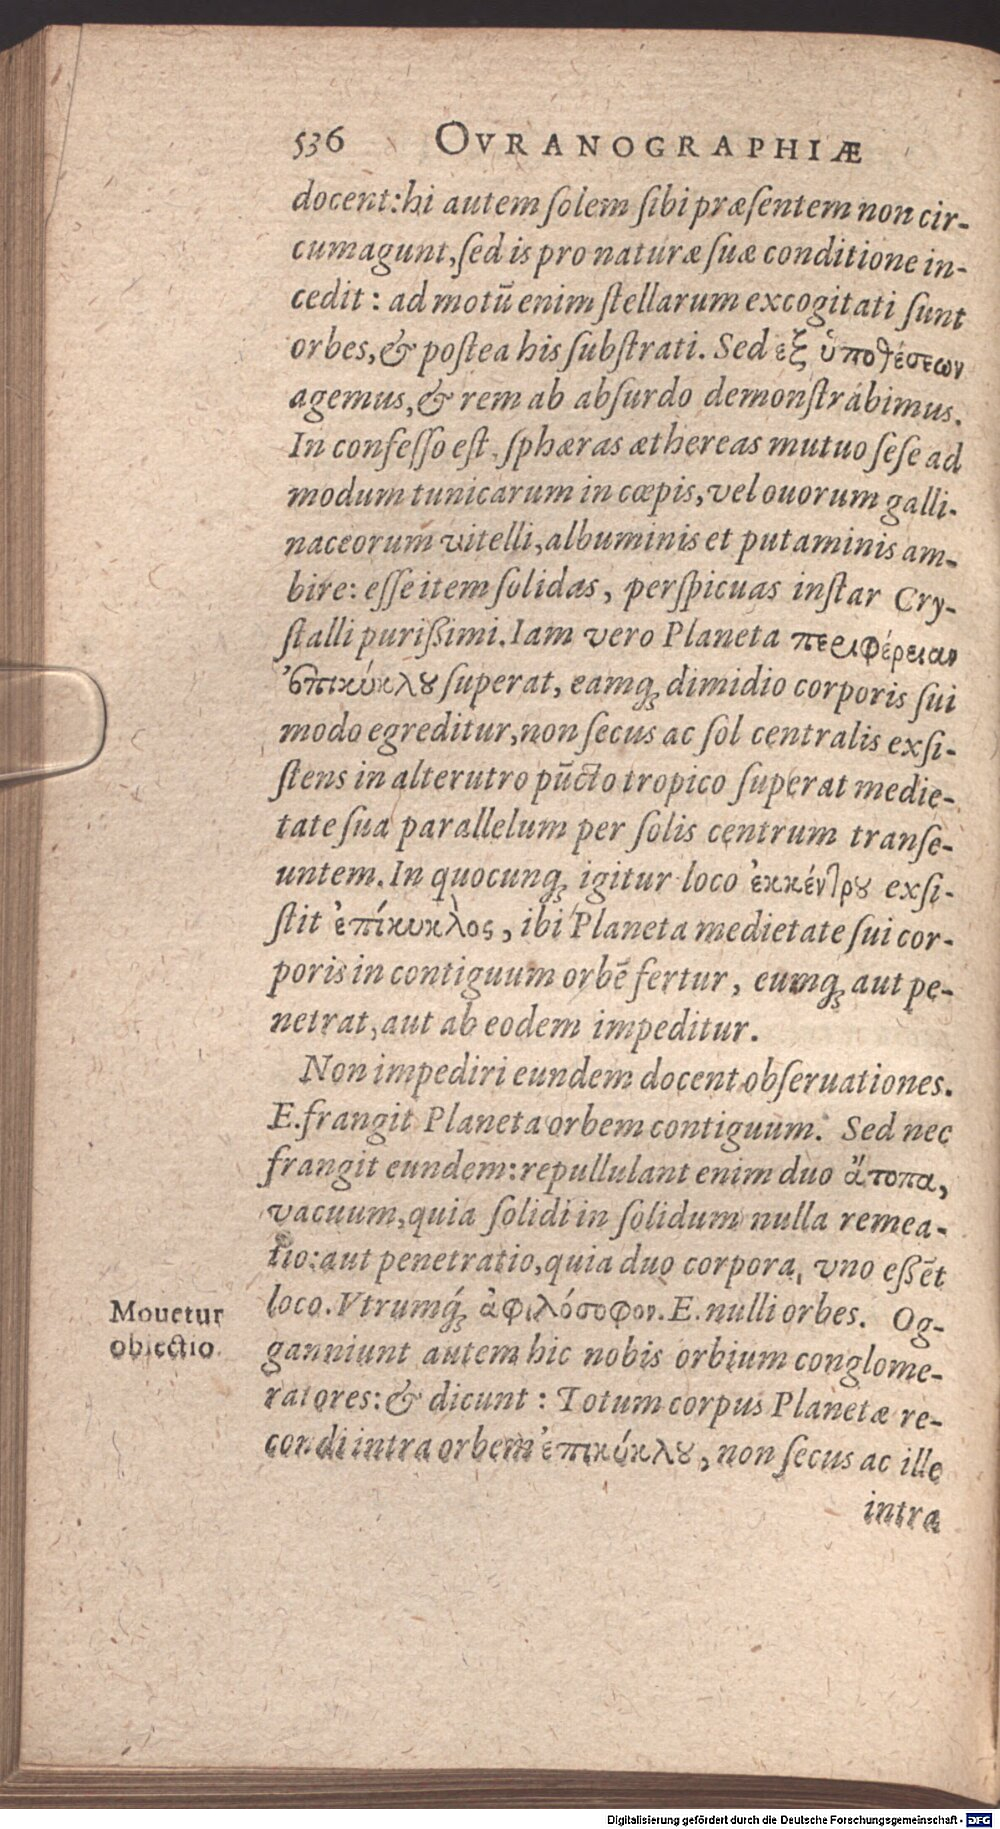 536 OVRANOGRAPHIÆ
docent: hi autem ſolem ſibi præſentem non cir-
cumagunt, ſed is pro naturæ ſuæ conditione in-
cedit: ad motũ enim ſtellarum excogitati ſunt
orbes, & poſtea his ſubſtrati. Sed ἐξ ὑποθέσεων
agemus, & rem ab abſurdo demonſtrabimus.
In confeſſo eſt, ſphæras æthereas mutuo ſeſe ad
modum tunicarum in cœpis, vel ouorum galli-
naceorum vitelli, albuminis et putaminis am-
bire: eſſe item ſolidas, perſpicuas inſtar Cry-
ſtalli purißimi. Iam vero Planeta περιφέρειαν
ἐπικύκλȣ ſuperat, eamq́ꝫ dimidio corporis ſui
modo egreditur, non ſecus ac ſol centralis exſi-
ſtens in alterutro pũcto tropico ſuperat medie-
tate ſua parallelum per ſolis centrum tranſe-
untem. In quocunqꝫ igitur loco ἐκκέντρȣ exſi-
ſtit ἐπίκυκλος, ibi Planeta medietate ſui cor-
poris in contiguum orbẽ fertur, eumqꝫ aut pe-
netrat, aut ab eodem impeditur.
Non impediri eundem docent obſeruationes.
E. frangit Planeta orbem contiguum. Sed nec
frangit eundem: repullulant enim duo ἄτοπα,
vacuum, quia ſolidi in ſolidum nulla remea-
tio: aut penetratio, quia duo corpora, vno eßẽt
loco. Vtrumq́ꝫ ἀφιλόσοφον. E. nulli orbes. Og-
ganniunt autem hic nobis orbium conglome-
ratores: & dicunt: Totum corpus Planetæ re-
condi intra orbem ἐπικύκλȣ, non ſecus ac ille
intra
Mouetur
obiectio.
Digitalisierung gefördert durch die Deutsche Forschungsgemeinschaft - DFG